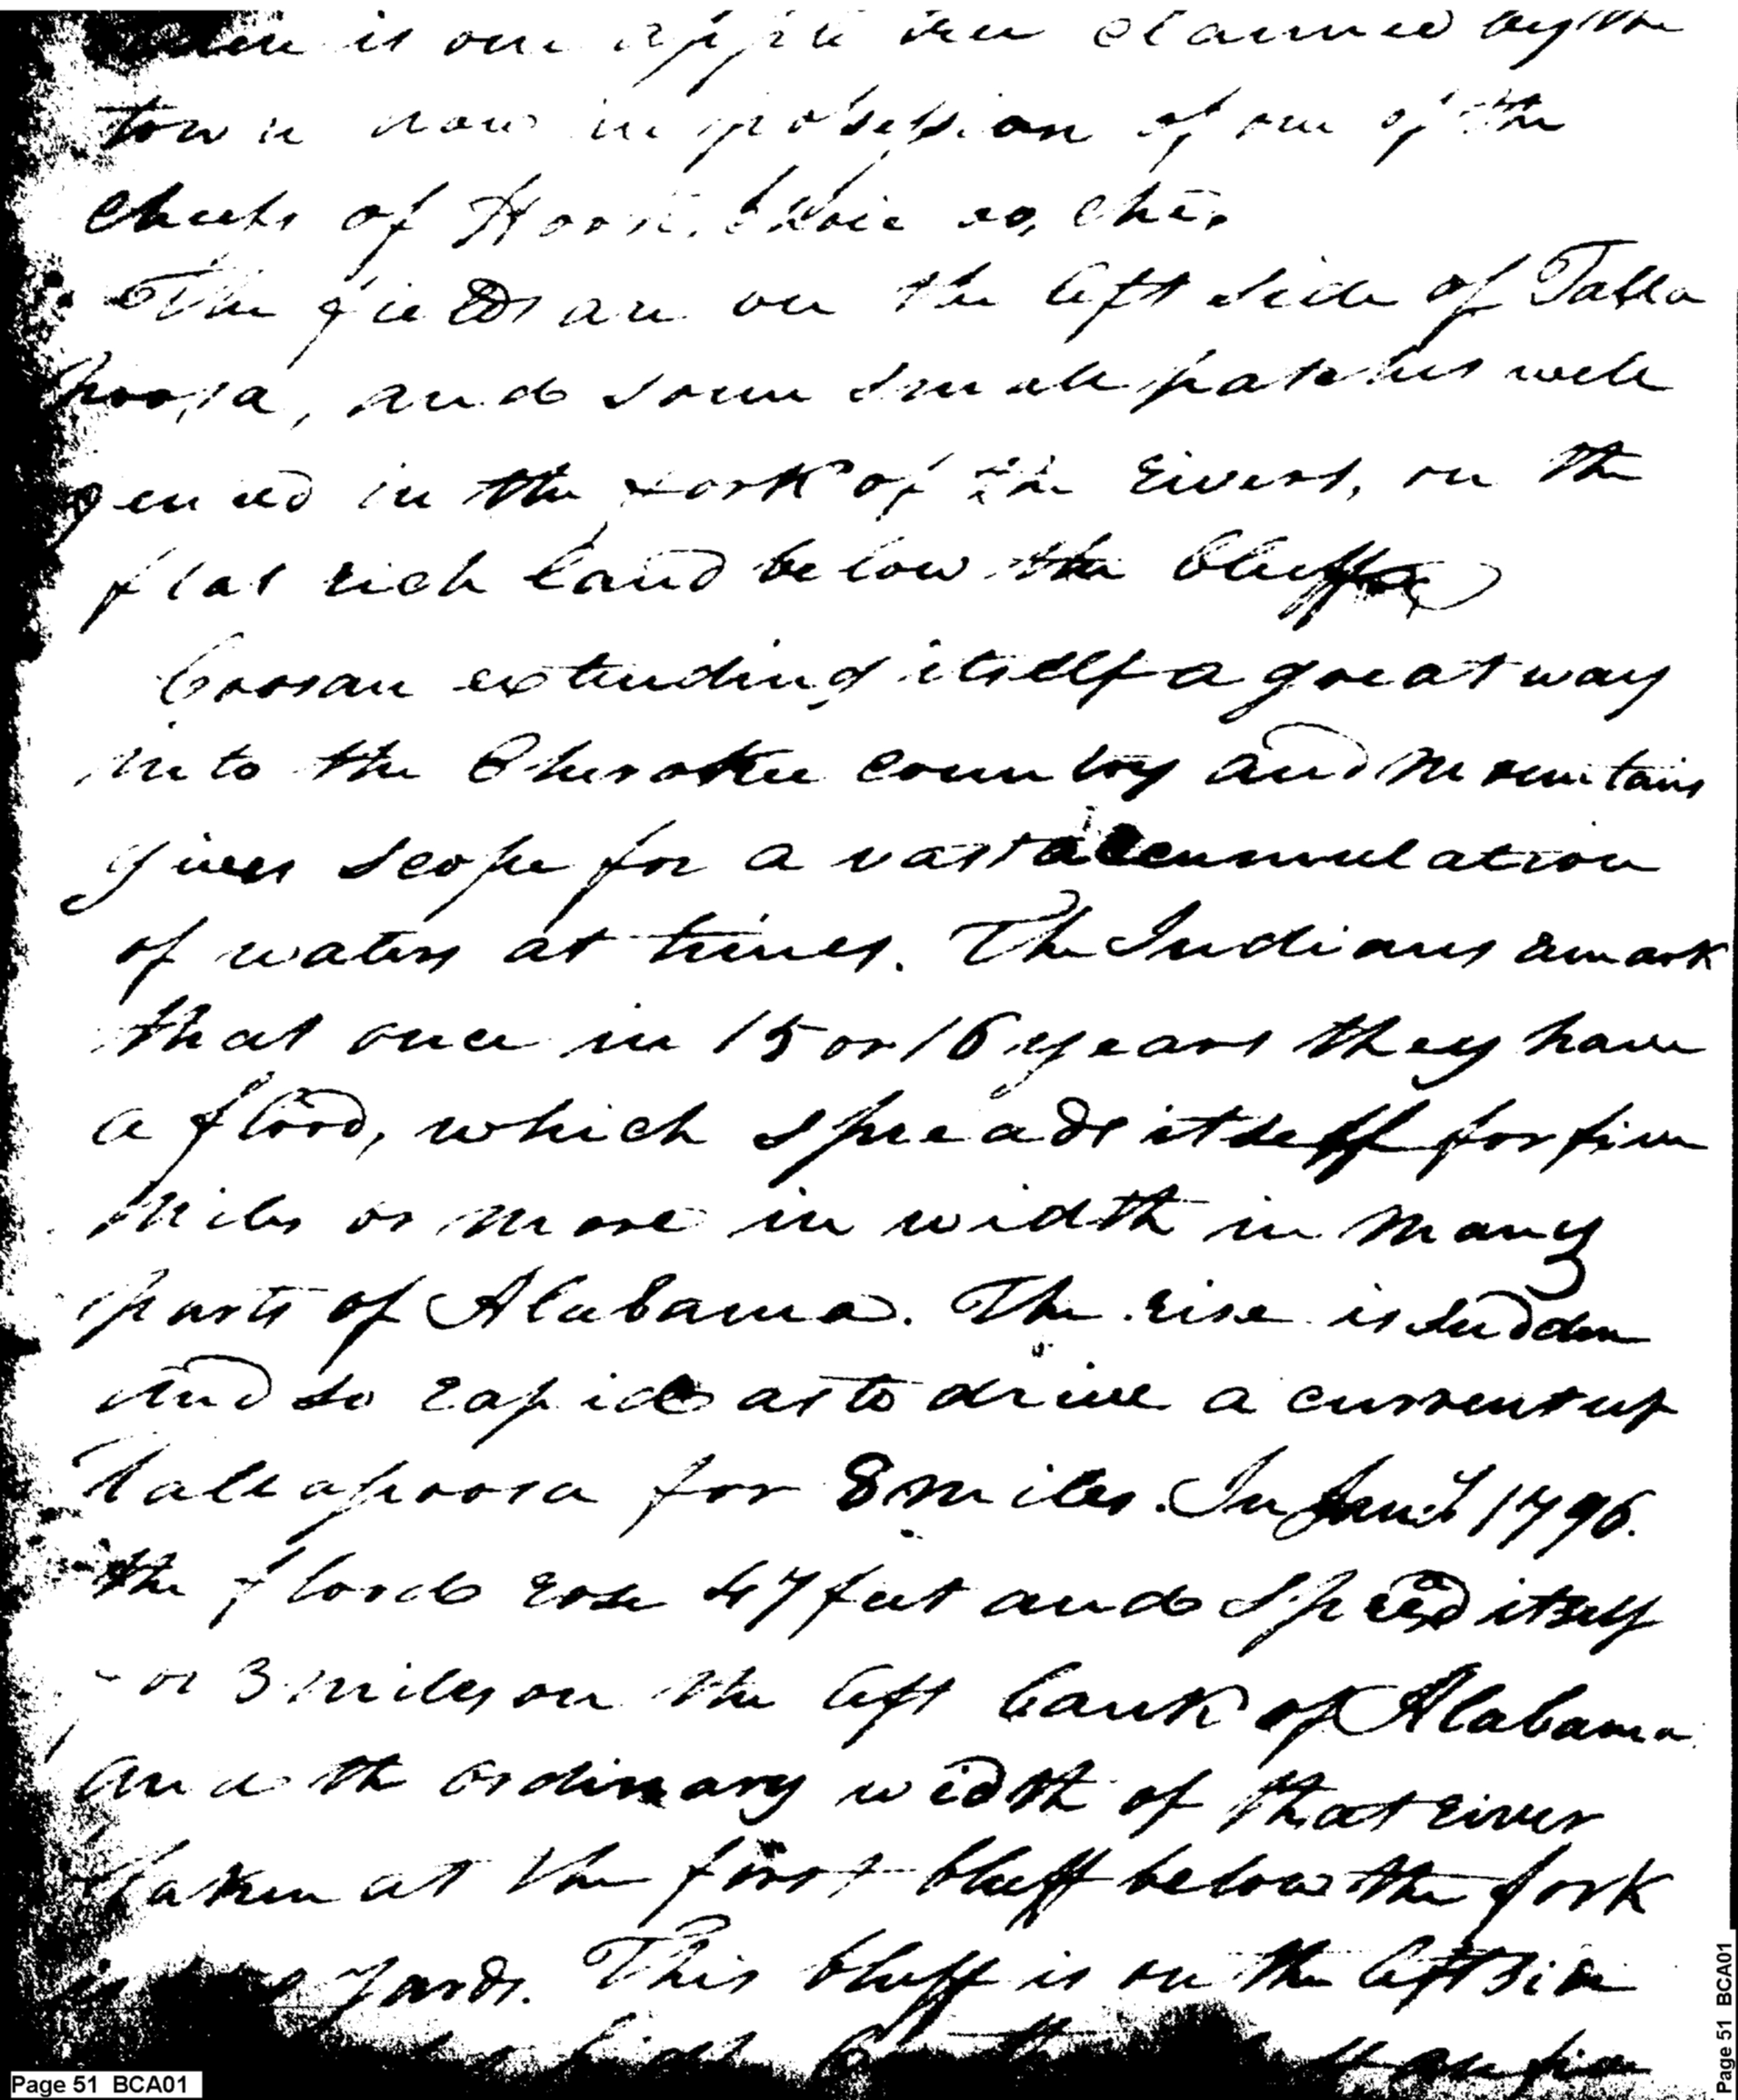 there is one apple tree claimed by the
town now in possession of one of the
Chiefs of Hook,choie
The fields are on the left side of Talla
poosa, and some small patches well
formed in the fork of the rivers, on the
flat rich land below the bluff
Coosau extending itself a great way
into the Cherokee country and mountains
gives scope for a vast accumulation
of waters at times. The Indians remark
that once in 15 or 16 years they have
a flood, which spreads itself for five
miles or more in width in many
parts of Alabama. The rise is sudden
and so rapid as to drive a current up
Tallapoosa for 8 miles. In Jany 1796.
the flood rose 47 feet and spread itself
for 3 miles on the left bank of Alabama
and the ordinary width of that river
taken at the first bluff below the fork
is yards. This bluff is on the left side
high
Page 51 BCA01
Page 51 BCA01